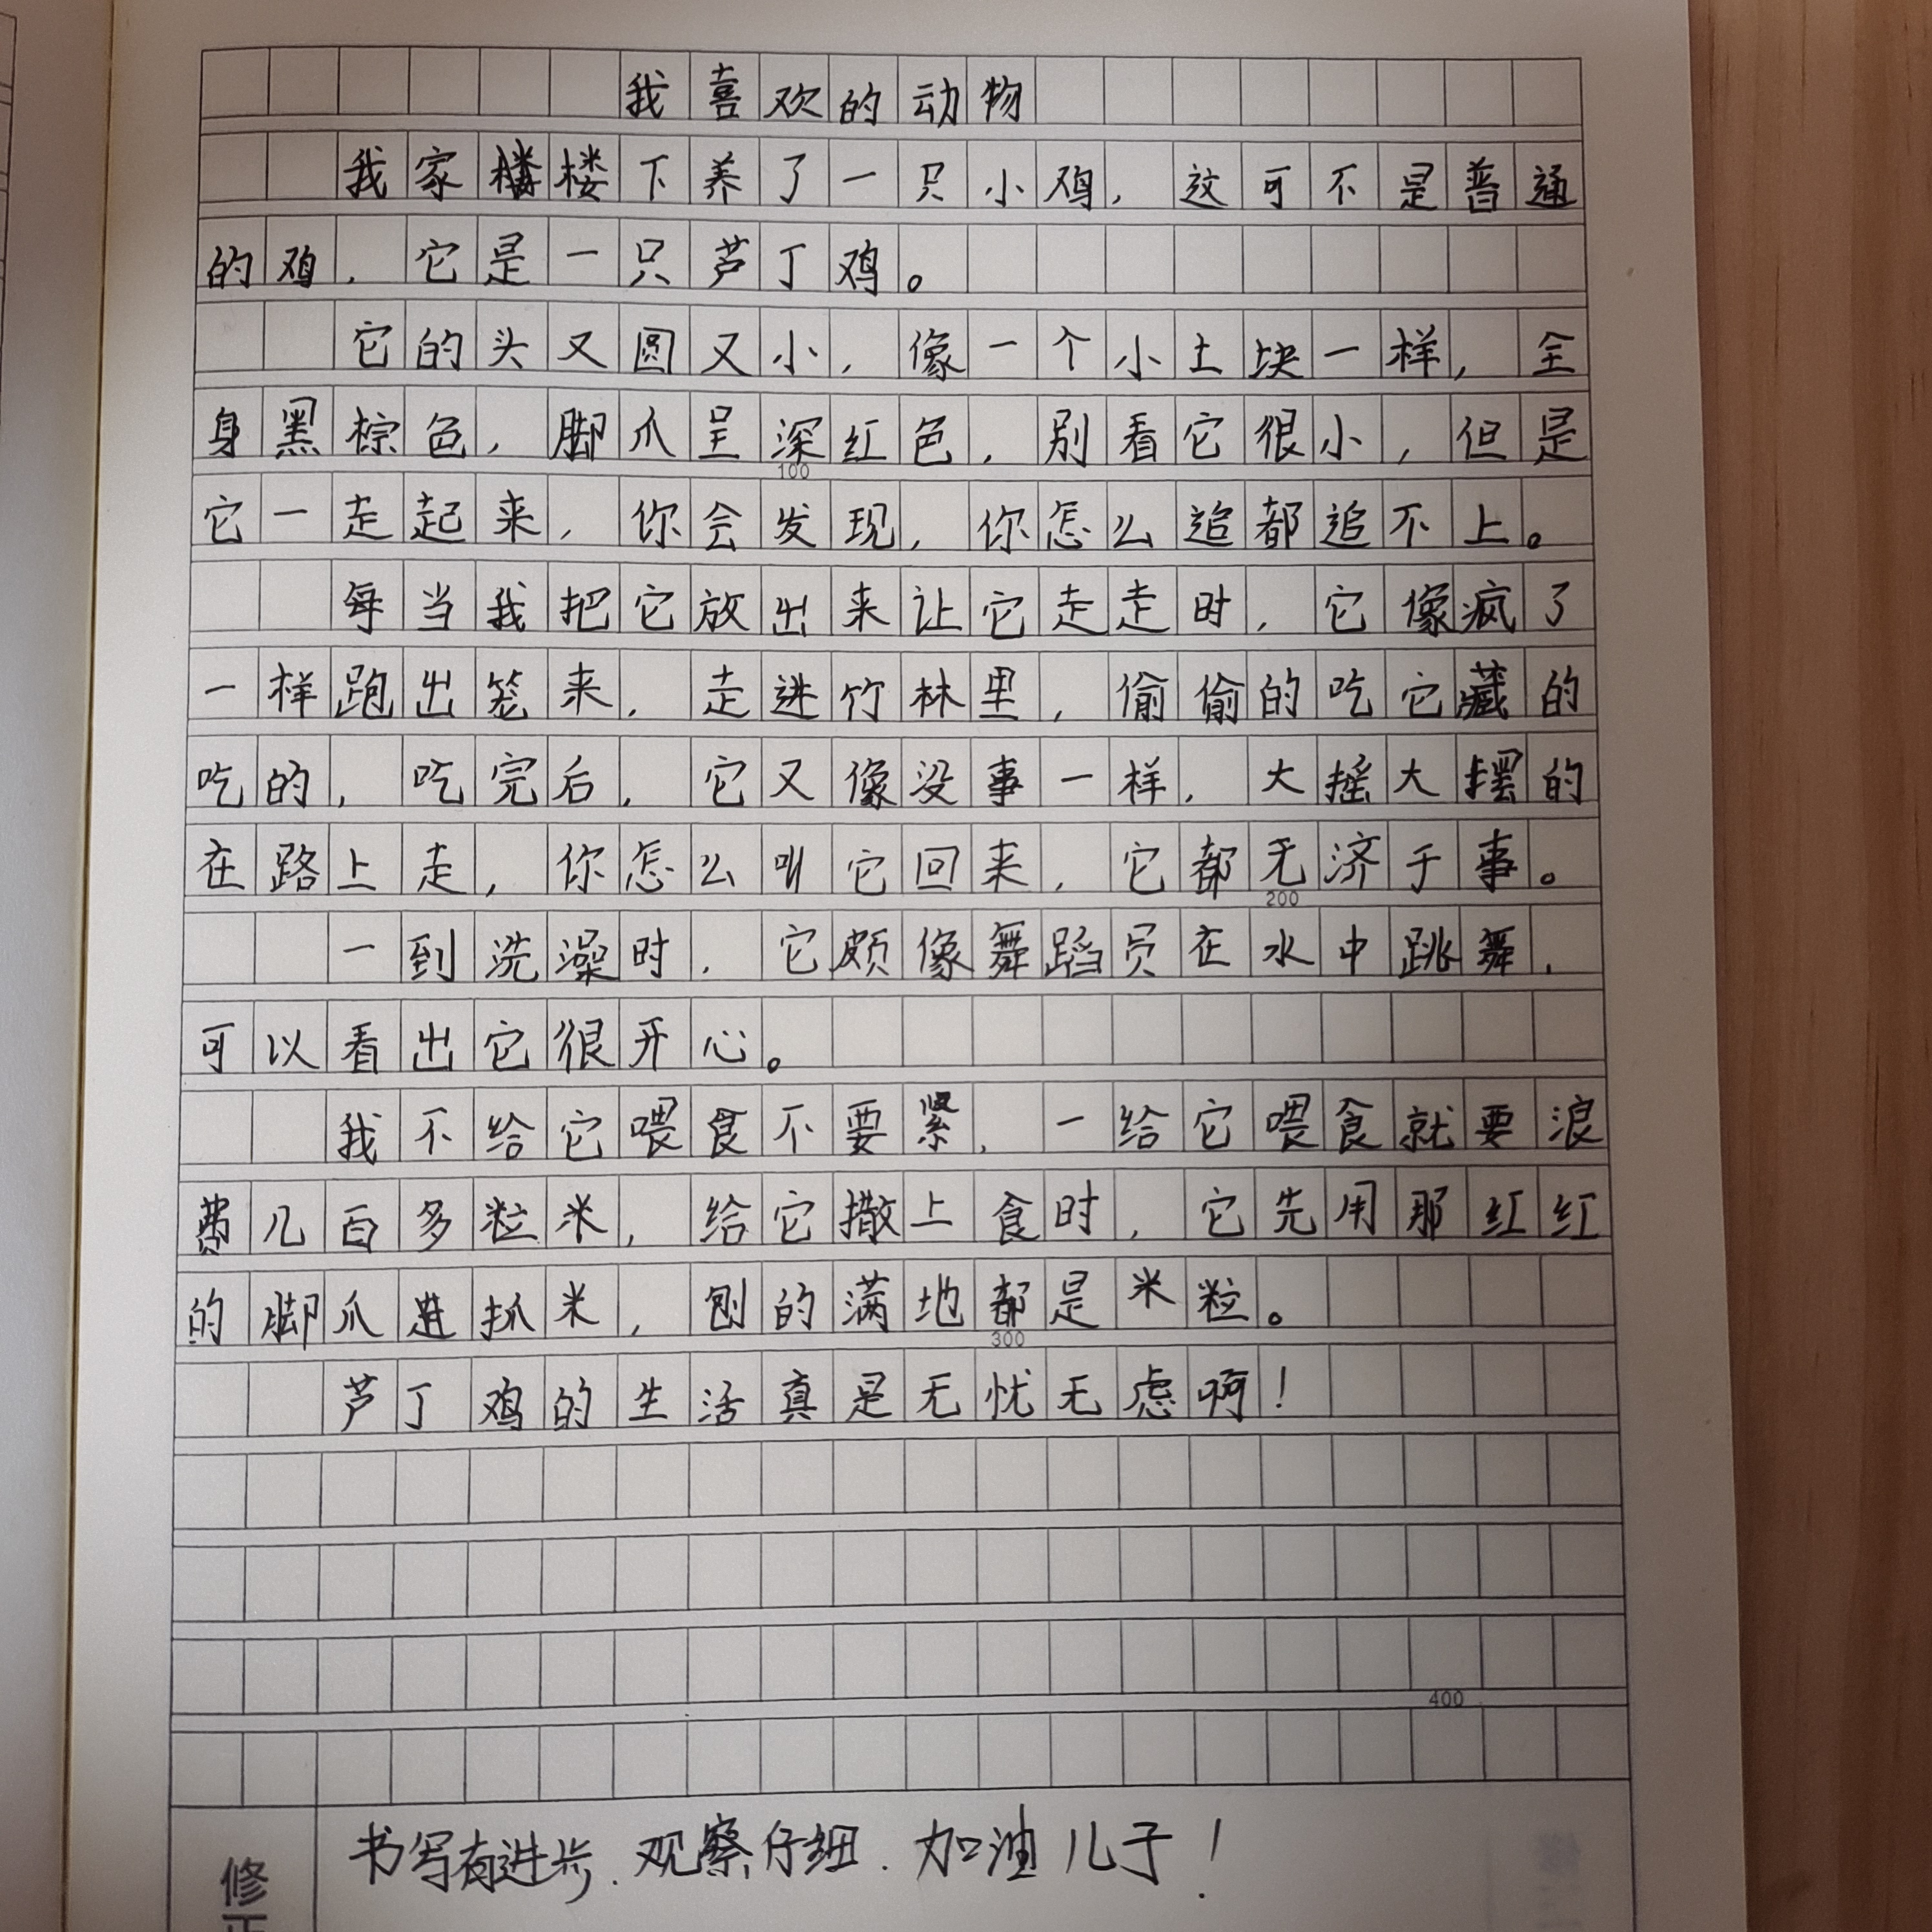 我喜欢的动物
我家楼下养了一只小鸡,这可不是普通
的鸡,它是一只芦丁鸡。
它的头又圆又小,像一个小土块一样,全
身黑棕色,脚爪呈深红色,别看它很小,但是
100
它一走起来,你会发现,你怎么追都追不上。
每当我把它放出来让它走走时,它像疯了
一样跑出笼来,走进竹林里,偷偷的吃它藏的
吃的,吃完后,它又像没事一样,大摇大摆的
在路上走,你怎么叫它回来,它都无济于事。
200
一到洗澡时,它颇像舞蹈员在水中跳舞,
可以看出它很开心。
我不给它喂食不要紧,一给它喂食就要浪
费几百多粒米,给它撒上食时,它先用那红红
的脚爪进抓米,刨的满地都是米粒。
300
芦丁鸡的生活真是无忧无虑啊!
400
书写有进步.观察仔细.加油儿子!
修正